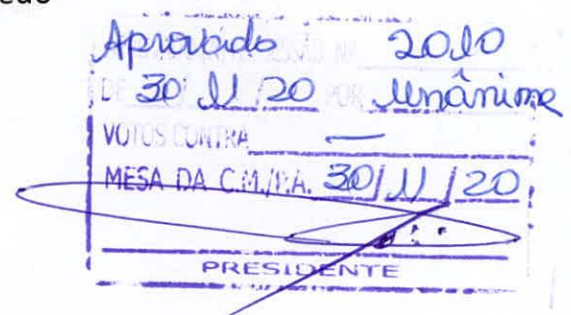 Aprovado 2010
DE 30/11/20 POR Unânime
VOTOS CONTRA —
MESA DA C.M./P.A. 30/11/20
PRESIDENTE